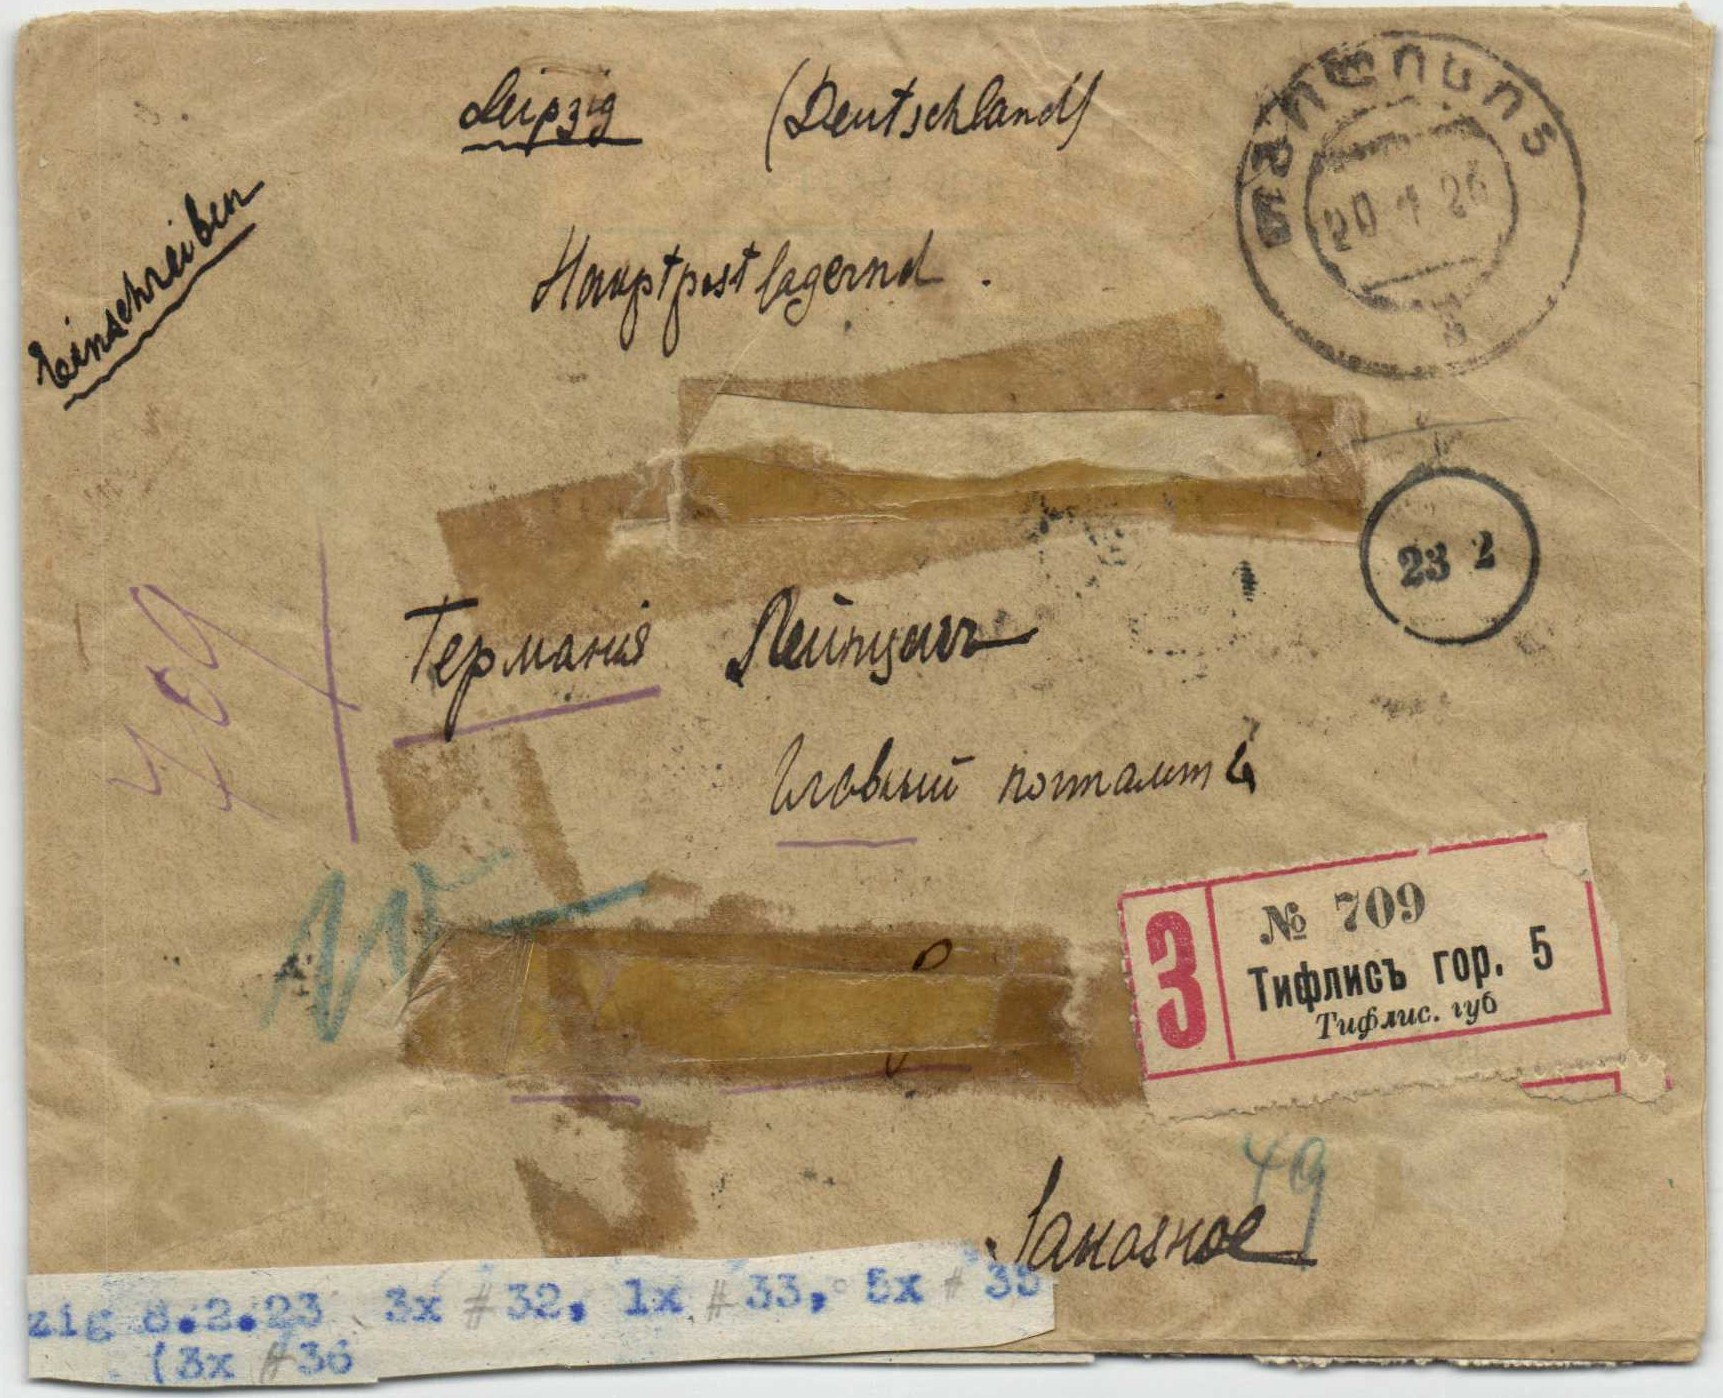 Leipzig (Deutschland)
Einschreiben
Hauptpostlagernd.
20 1 23
23 2
Германія Лейпциг
Главный почтамтъ
409
№ 709
З
Тифлисъ гор. 5
Тифлис. губ
49
Заказное
zig 8.2.23 3x #32, 1x #33, 5x #35
(3x #36